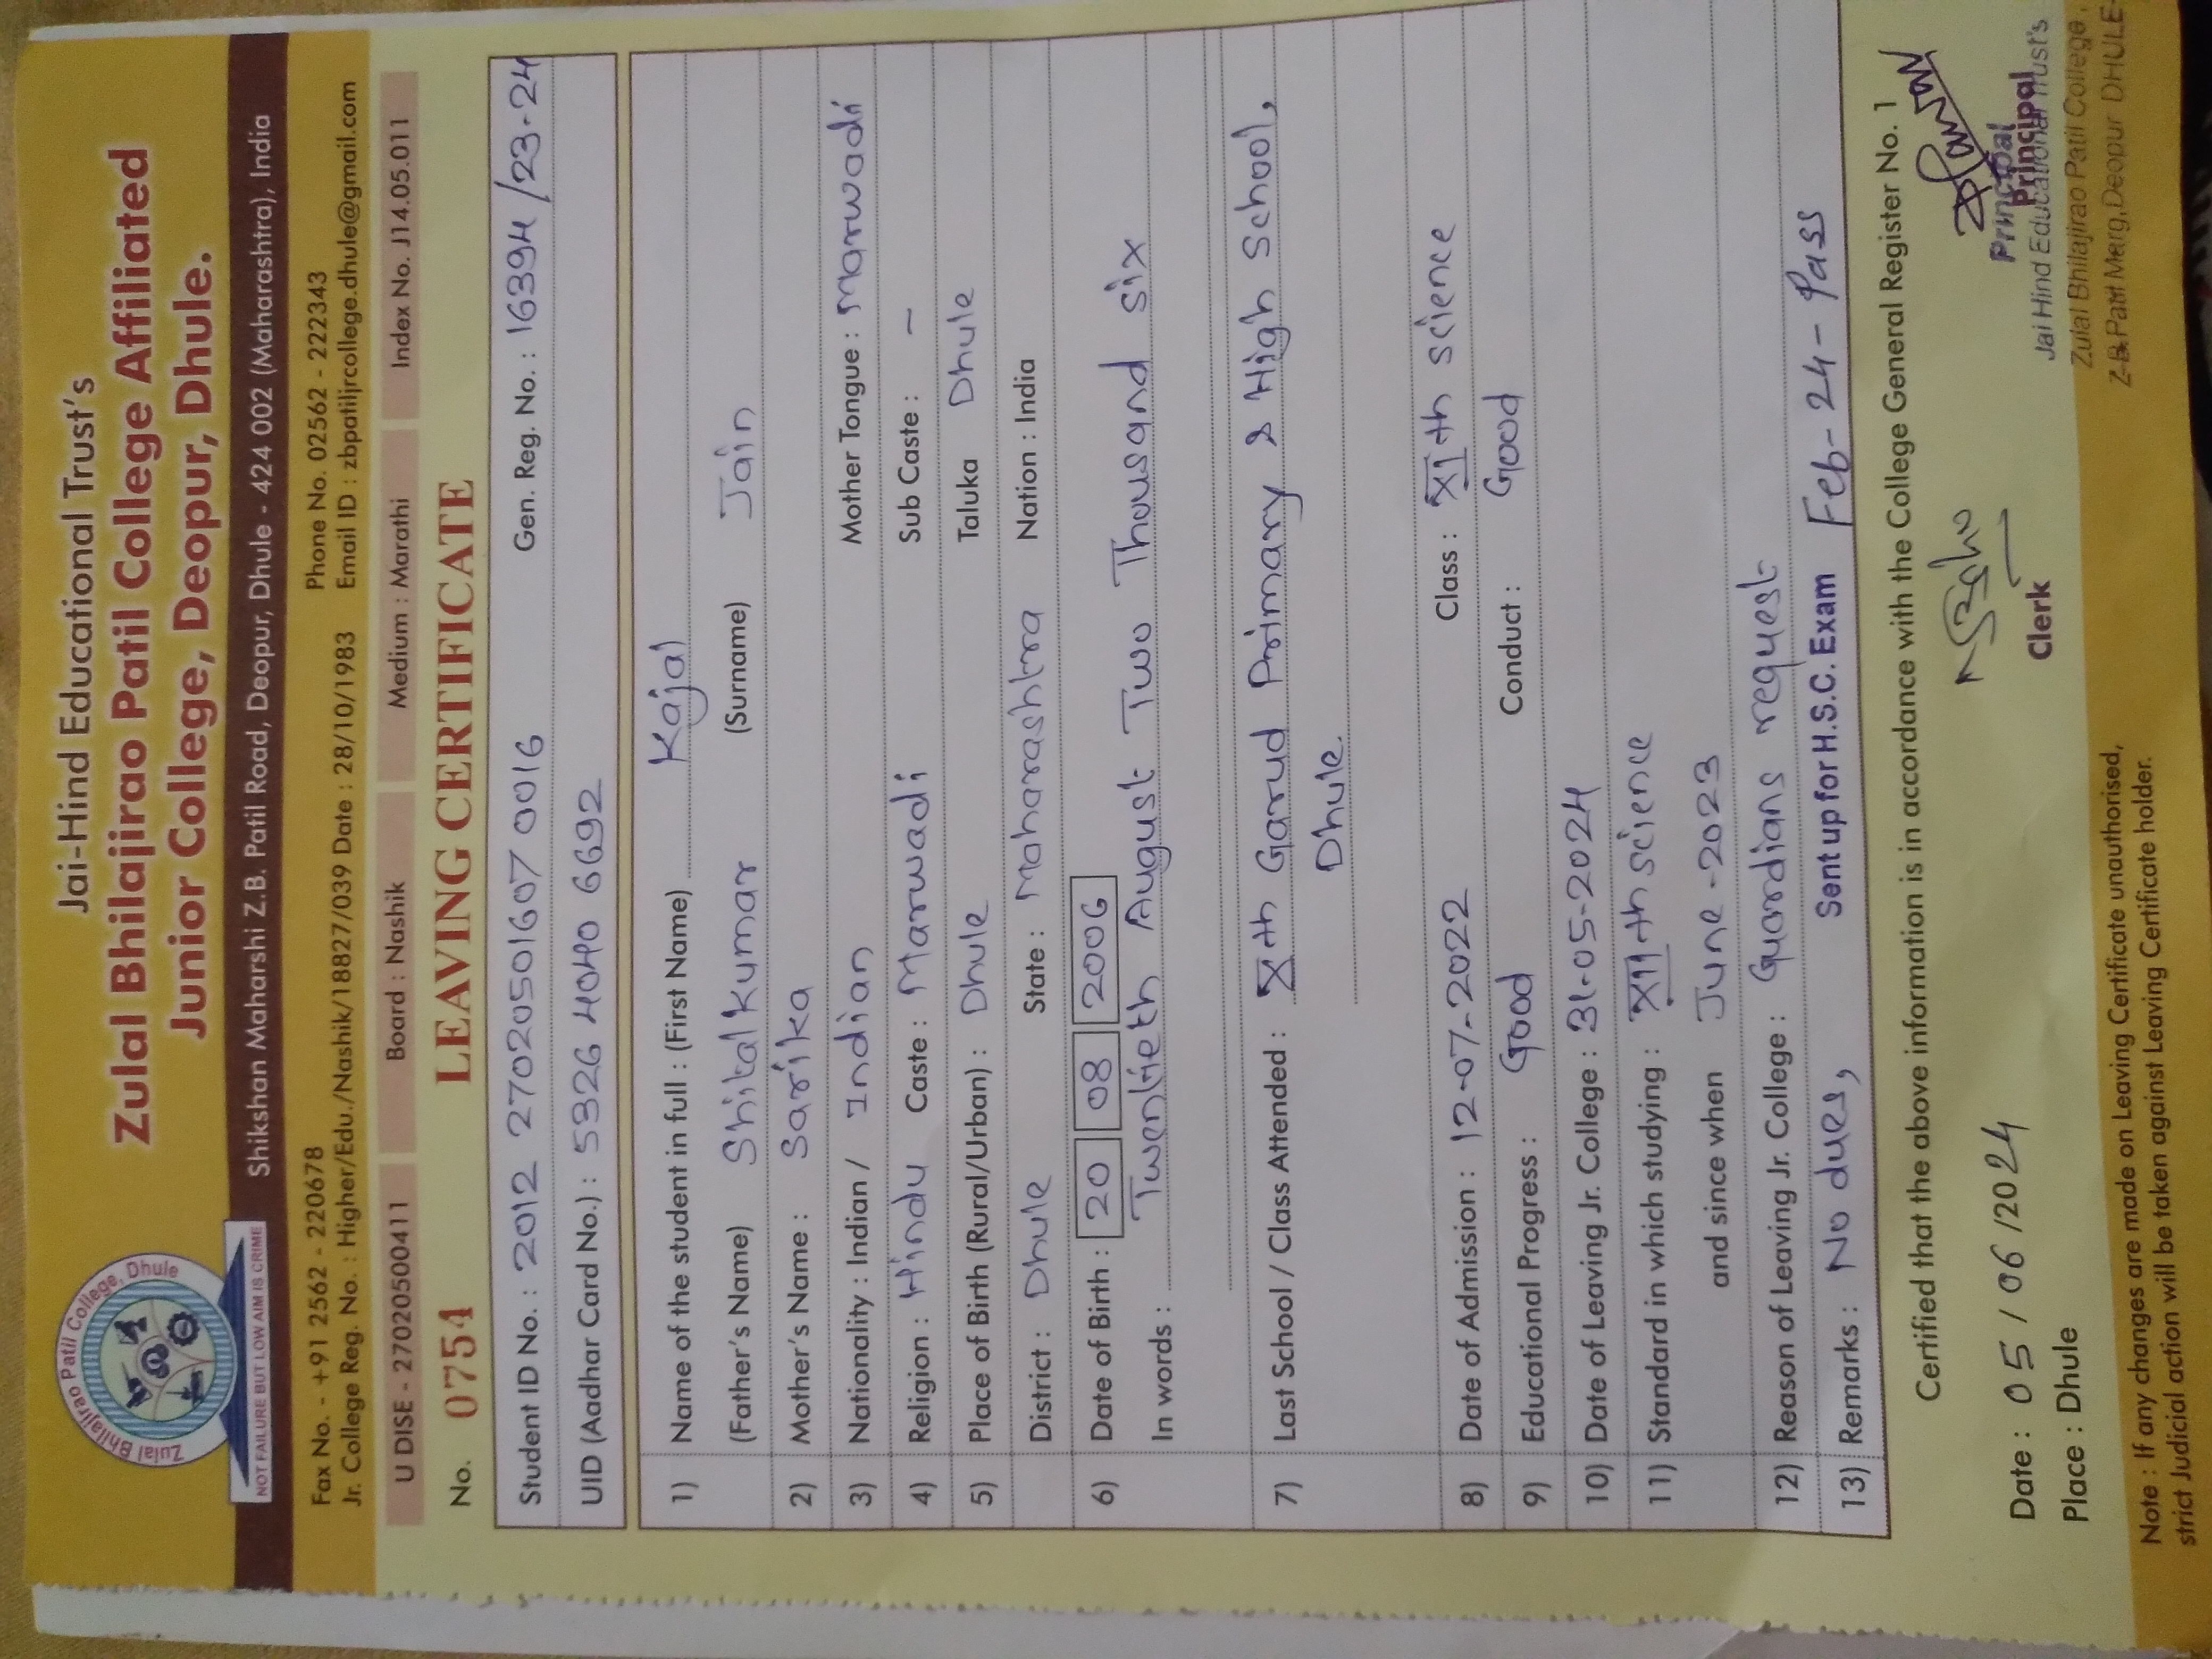 Zulal Bhilajirao Patil College, Dhule
NOT FAILURE BUT LOW AIM IS CRIME
Jai-Hind Educational Trust's
Zulal Bhilajirao Patil College Affiliated
Junior College, Deopur, Dhule.
Shikshan Maharshi Z.B. Patil Road, Deopur, Dhule - 424 002 (Maharashtra), India
Fax No. - +91 2562 - 220678 Phone No. 02562 - 222343
Jr. College Reg. No. : Higher/Edu./Nashik/18827/039 Date : 28/10/1983 Email ID : zbpatiljrcollege.dhule@gmail.com
U DISE - 27020500411 Board : Nashik Medium : Marathi Index No. J14.05.011
No. 0754 LEAVING CERTIFICATE
Student ID No. : 2012 27020501607 0016 Gen. Reg. No. : 16394/23-24
UID (Aadhar Card No.) : 5326 4040 6692
1) Name of the student in full : (First Name) Kajal
(Father's Name) Shitalkumar (Surname) Jain
2) Mother's Name : Sarika
3) Nationality : Indian / Indian Mother Tongue : Marwadi
4) Religion : Hindu Caste : Marwadi Sub Caste : -
5) Place of Birth (Rural/Urban) : Dhule Taluka Dhule
District : Dhule State : Maharashtra Nation : India
6) Date of Birth : 20 08 2006
In words : Twentieth August Two Thousand six
7) Last School / Class Attended : Xth Garud Primary & High School,
Dhule.
8) Date of Admission : 12-07-2022 Class : XIth science
9) Educational Progress : Good Conduct : Good
10) Date of Leaving Jr. College : 31-05-2024
11) Standard in which studying : XIIth science
and since when June-2023
12) Reason of Leaving Jr. College : Guardians request
13) Remarks : No dues, Sent up for H.S.C. Exam Feb-24-Pass
Certified that the above information is in accordance with the College General Register No. 1
Date : 05/06/2024
Place : Dhule
Clerk
Principal
Principal
Jai Hind Educational Trust's
Zulal Bhilajirao Patil College,
Z.B.Patil Marg,Deopur DHULE-
Note : If any changes are made on Leaving Certificate unauthorised,
strict Judicial action will be taken against Leaving Certificate holder.